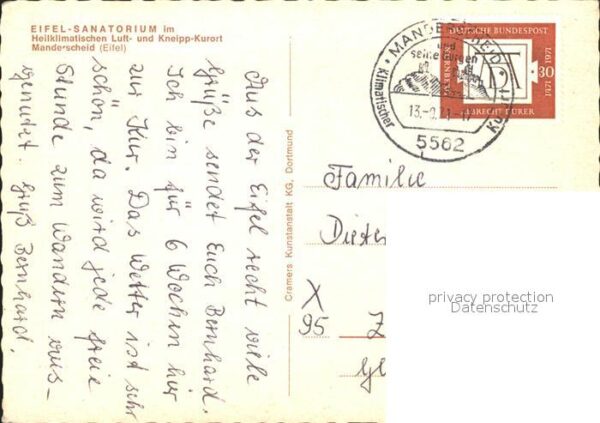 EIFEL-SANATORIUM im
Heilklimatischen Luft- und Kneipp-Kurort
Manderscheid (Eifel)
Aus der Eifel recht viele
Grüße sendet Euch Bernhard.
Ich bin für 6 Wochen hier
zur Kur. Das Wetter ist sehr
schön, da wird jede freie
Stunde zum Wandern aus-
genutzt. Gruß Bernhard.
Cramers Kunstanstalt KG, Dortmund
MANDERSCHEID
und
seine Burgen
Klimatischer
Kurort
5562
DEUTSCHE BUNDESPOST
30
1471 1971
ALBRECHT DÜRER
Familie
Dieter
X
95
privacy protection
Datenschutz